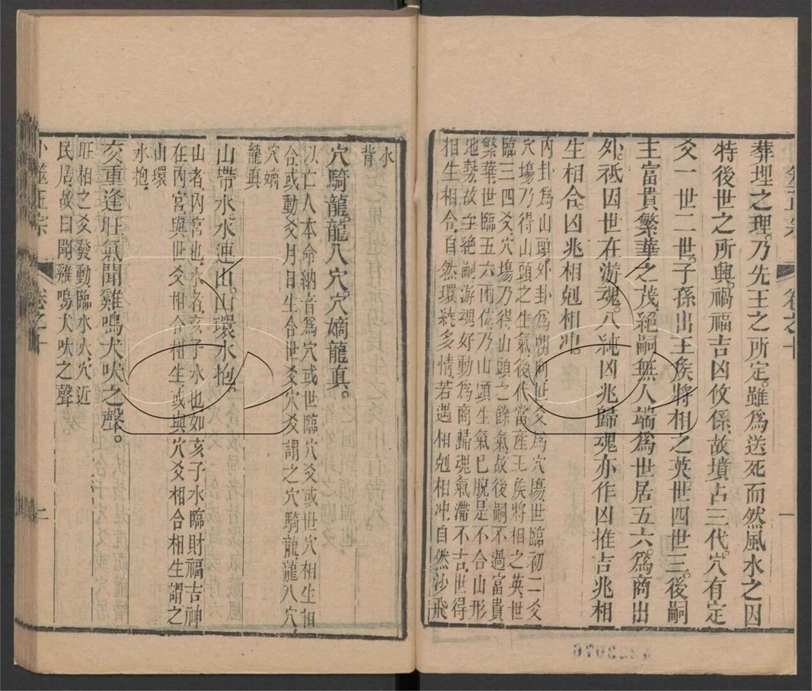 葬埋之理乃先王之所定雖爲送死而然風水之因
特後世之所興禍福吉凶攸係故墳占三代穴有定
爻一世二世子孫出王侯將相之英世四世三後嗣
主富貴繁華之茂絕嗣無人端爲世居五六爲商出
外祗因世在游魂八純凶兆歸魂亦作凶推吉兆相
生相合凶兆相剋相冲
內卦爲山頭外卦爲朝向世爻爲穴塲世臨初二爻
穴塲乃得山頭之生氣後代當產王侯將相之英世
臨三四爻穴塲乃得山頭之餘氣故後嗣不過富貴
繁華世臨五六兩位乃山頭生氣已脫是不合山形
地勢故主絕嗣游魂好動爲商歸魂氣滯不吉世得
相生相合自然環繞多情若遇相剋相冲自然沙飛
水
背
穴騎龍龍八穴穴嫡龍眞
以亡人本命納音爲穴或世臨穴爻或世穴相生相
合或動爻月日生合世爻穴爻謂之穴騎龍龍八穴
穴嫡
龍眞
山帶水水連山山環水抱
山者內宮也水者亥子水也如亥子水臨財福吉神
在內宮與世爻相合相生或與穴爻相合相生謂之
山環
水抱
交重逢旺氣聞雞鳴犬吠之聲
旺相之爻發動臨水火穴近
民居故曰聞雞鳴犬吠之聲
卜筮正宗
卷之十
二